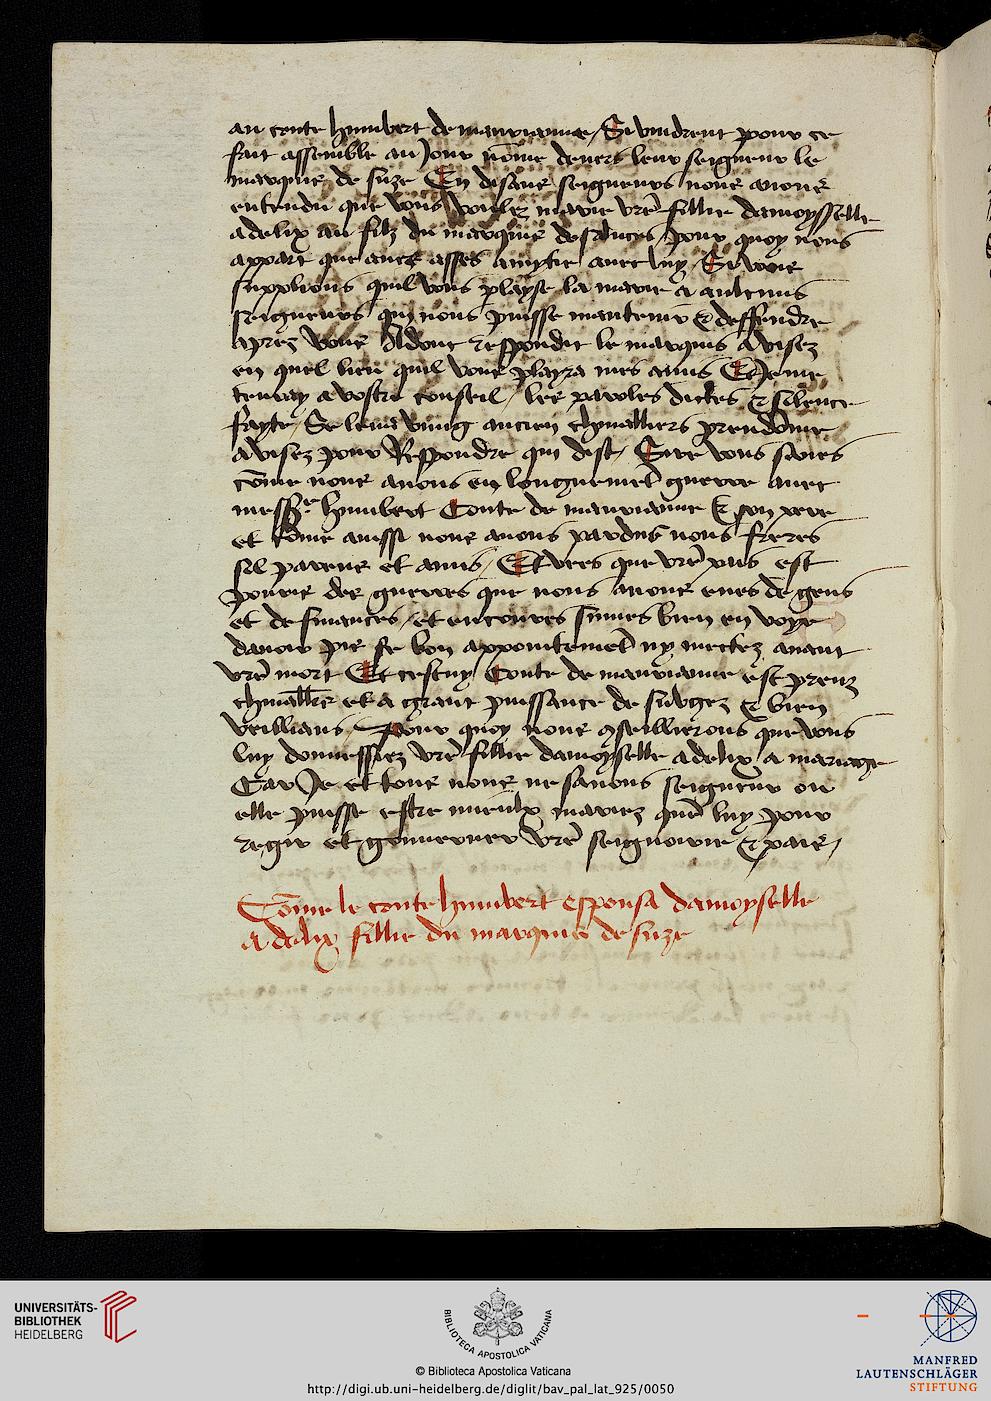 au conte humbert de maurianne / Si vindrent pour ce
fait assemble au Jour nõme devers leur seigneur le
marquis de suze En disant seigneurs nous avons
entendu que vous voulez marir vr̃e fillie damoysselle
adelix au filz du marquis de saluces pour quoy nous
appart que aves asses amytie avec luy Si vous
supplions quil vous playse la marir a aulcuns
seigneurs qui nous puisse mantenir & deffendre
aprez vous Adont respondit le marquis Avisez
en quel lieu quil vous playra mes amis Et Je me
tenray a vostre conseil / les paroles dictes & silence
fayte / Se leva ung ancien chevalliers preudõme
avisez pour Respondre qui dist / Sire vous saves
cõme nous avons eu longuemẽt guerre avec
messr̃e humbert Conte de maurianne & son pere
et cõme aussi nous avons pardus nous freres
fil parens et amis / Et vees que vr̃e pais est
pourre des guerres que nous avons eues de gens
et de finances / et encoures sumes bien en voye
davoir pis se bon appointemẽt ny mectez avant
vr̃e mort Et cestuy Conte de maurianne est preuz
chevallier et a grant puissance de subgez & bien
veillians / Pour quoy nous conseillierons que vous
luy donnessiez vr̃e fillie damoyselle adelix a mariage
Car Je et tous nous ne savons seigneur ou
elle puisse estre mieulx mariez que luy pour
regir et gouverner vr̃e seignourie & pais /
Cõme le conte humbert espousa damoyselle
Adelix fillie du marquis de suze
UNIVERSITÄTS-
BIBLIOTHEK
HEIDELBERG
BIBLIOTECA APOSTOLICA VATICANA
© Biblioteca Apostolica Vaticana
http://digi.ub.uni-heidelberg.de/diglit/bav_pal_lat_925/0050
MANFRED
LAUTENSCHLÄGER
STIFTUNG